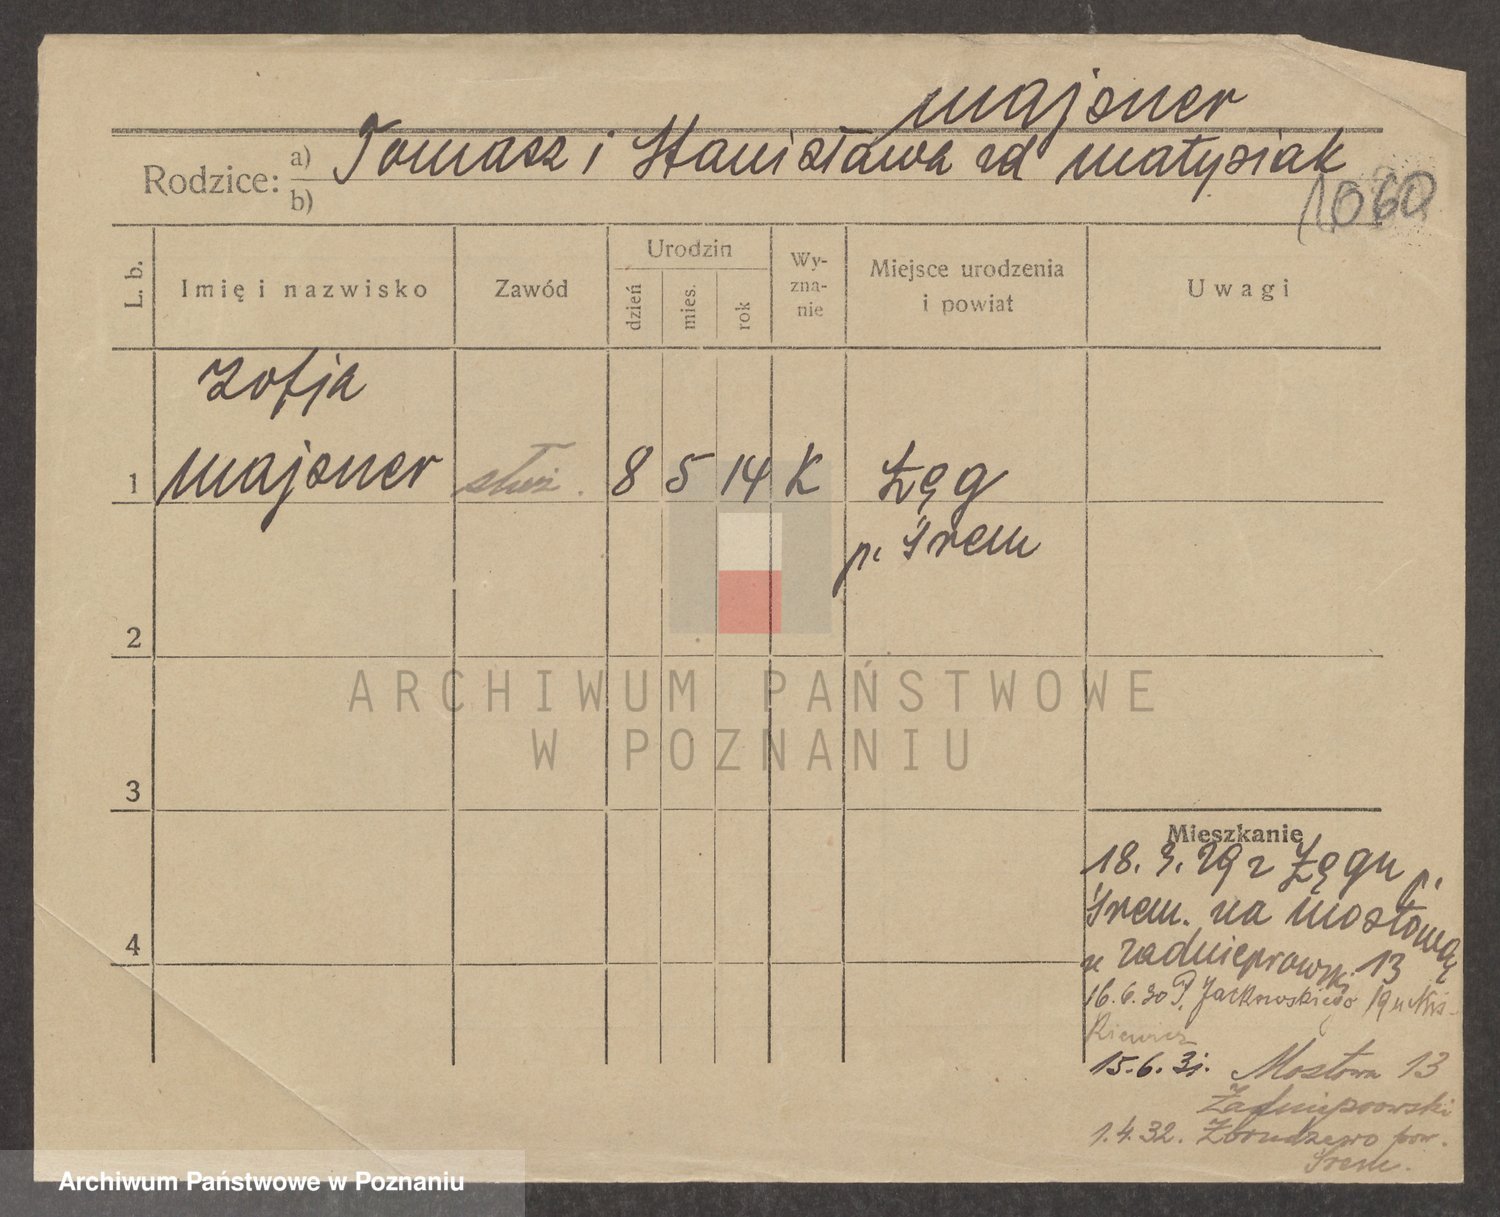 Majsner
Rodzice: a) Tomasz i Stanisława zd Matysiak
b)
1060
L. b.
Imię i nazwisko
Zawód
Urodzin
dzień
mies.
rok
Wy-
zna-
nie
Miejsce urodzenia
i powiat
Uwagi
Zofja
1 Majsner służ. 8 5 14 K Łęg
p. Śrem
2
ARCHIWUM PAŃSTWOWE
W POZNANIU
3
Mieszkanie
18. 3. 29 z Łęgu p.
Śrem. na Mostową
u Zadnieprowski 13
4
16.6.30 P. Jackowskiego 19 u Miś-
kiewicz
15.6.31. Mostowa 13
Zadnieprowski
1.4.32. Zbrudzewo pow.
Śrem.
Archiwum Państwowe w Poznaniu